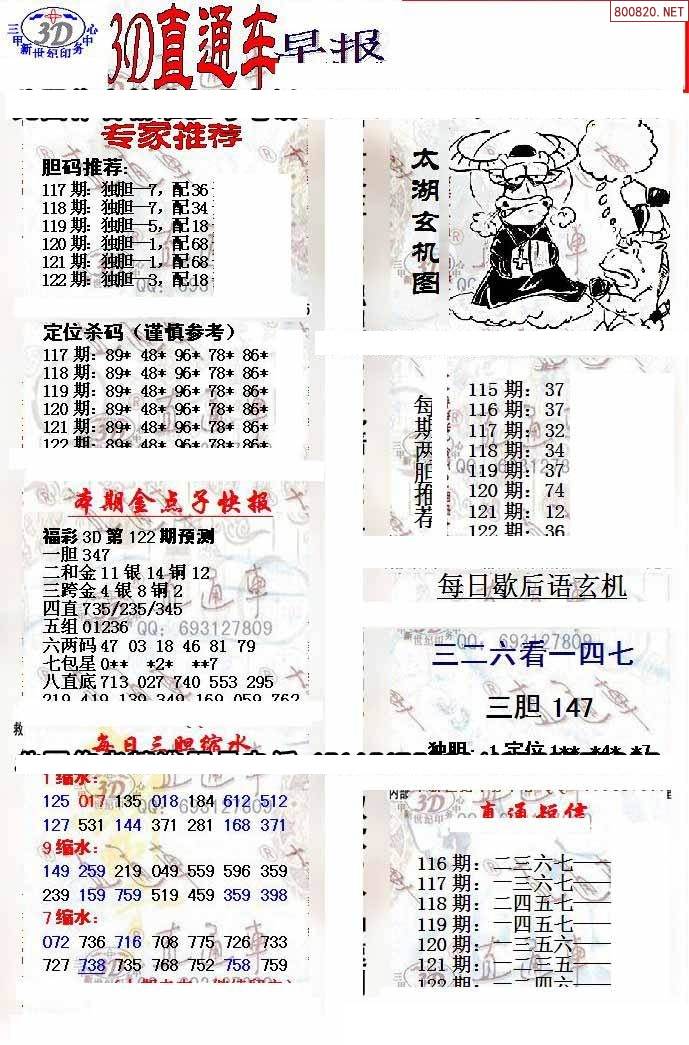 800820.NET
三甲 3D 中心
新世纪印务
3D直通车早报
专家推荐
胆码推荐:
117期: 独胆—7, 配36
118期: 独胆—7, 配34
119期: 独胆—5, 配18
120期: 独胆—1, 配68
121期: 独胆—1, 配68
122期: 独胆—3, 配18
定位杀码（谨慎参考）
117期: 89* 48* 96* 78* 86*
118期: 89* 48* 96* 78* 86*
119期: 89* 48* 96* 78* 86*
120期: 89* 48* 96* 78* 86*
121期: 89* 48* 96* 78* 86*
122期: 89* 48* 96* 78* 86*
本期金点子快报
福彩3D第122期预测
一胆347
二和金11银14铜12
三跨金4银8铜2
四直735/235/345
五组01236
六两码 47 03 18 46 81 79
七包星0** *2* **7
八直底713 027 740 553 295
219 419 139 349 169 059 762
QQ: 693127809
每日三胆缩水
1缩水:
125 017 135 018 184 612 512
127 531 144 371 281 168 371
9缩水:
149 259 219 049 559 596 359
239 159 759 519 459 359 398
7缩水:
072 736 716 708 775 726 733
727 738 735 768 752 758 759
太湖玄机图
每期两胆推荐
115期: 37
116期: 37
117期: 32
118期: 34
119期: 37
120期: 74
121期: 12
122期: 36
每日歇后语玄机
QQ: 693127809
三二六看一四七
三胆 147
独胆: 1 定位 1** *4* *7
内部
直通短信
116期: 二三六七——
117期: 一三六七——
118期: 二四五七——
119期: 一四五七——
120期: 一三五六——
121期: 一二三五——
122期: 一二四六——